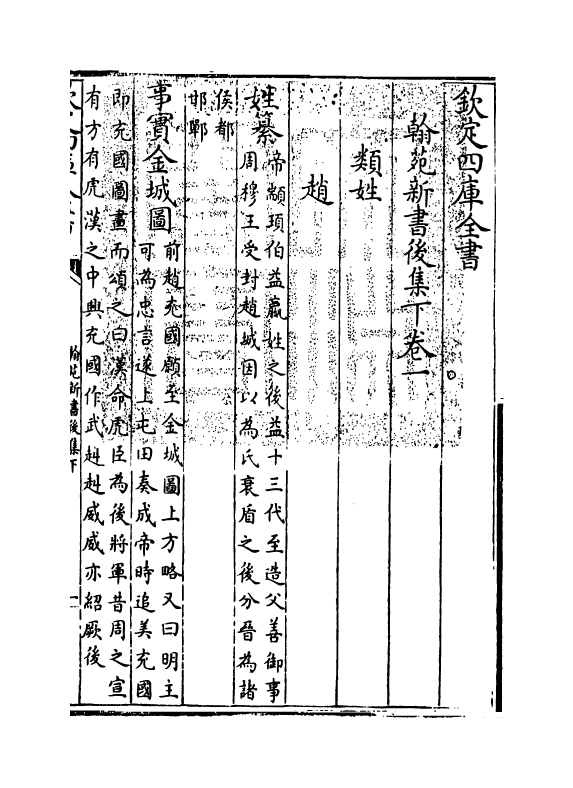 欽定四庫全書
翰苑新書後集下卷一
類姓
趙
姓纂帝顓頊伯益嬴姓之後益十三代至造父善御事
周穆王受封趙城因以為氏衰盾之後分晉為諸
侯都
邯鄲
事實金城圖前趙充國願至金城圖上方略又曰明主
可為忠言遂上屯田奏成帝時追美充國
即充國圖畫而頌之曰漢命虎臣為後將軍昔周之宣
有方有虎漢之中興充國作武赳赳威威亦紹厥後
翰苑新書後集下
一